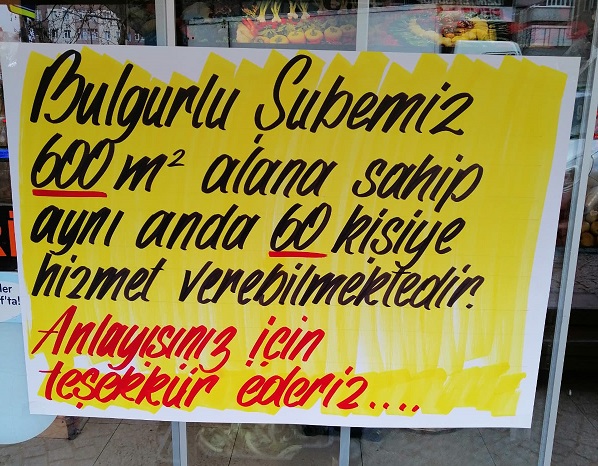 Bulgurlu Şubemiz
600 m² alana sahip
aynı anda 60 kişiye
hizmet verebilmektedir.
Anlayışınız için
teşekkür ederiz....
ler
f'ta!